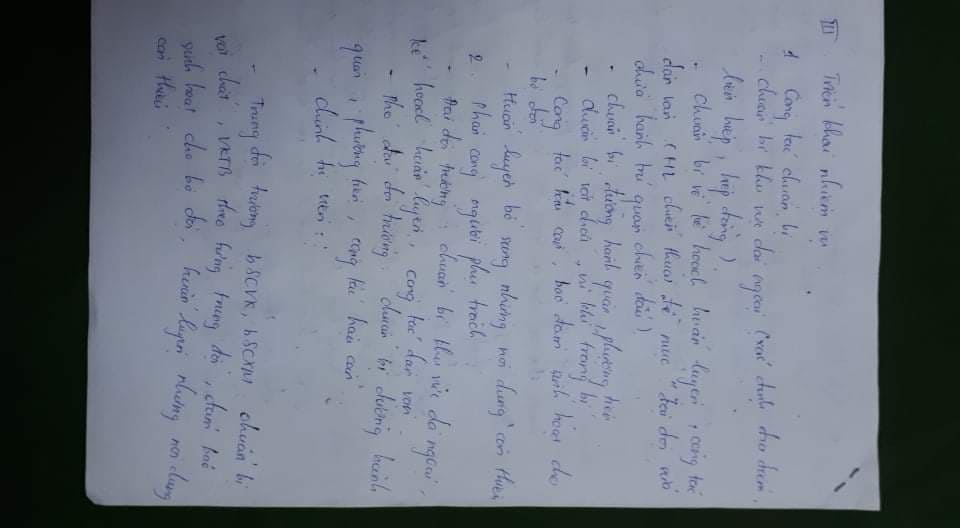 III Triển khai nhiệm vụ
1 Công tác chuẩn bị
- chuẩn bị khu vực dã ngoại (xác định địa điểm,
liên hiệp, hiệp đồng).
- chuẩn bị về kế hoạch huấn luyện, công tác
dân vận (HL chiến thuật đề mục "đại đội
hành trú quân chiến đấu)
- chuẩn bị đường hành quân, phương tiện
- chuẩn bị vật chất, vũ khí trang bị
- Công tác hậu cần, bảo đảm sinh hoạt cho
bộ đội
- Huấn luyện bổ sung những nội dung còn thiếu
2. Phân công người phụ trách
- Đại đội trưởng: chuẩn bị khu vực dã ngoại,
kế hoạch huấn luyện, công tác dân vận
- Phó đại đội trưởng: chuẩn bị đường hành
quân, phương tiện, công tác hậu cần
- chính trị viên:
- Trung đội trưởng bSCVK, bSCXM chuẩn bị
vật chất, VKTB theo từng trung đội, đảm bảo
sinh hoạt cho bộ đội, huấn luyện những nội dung
còn thiếu